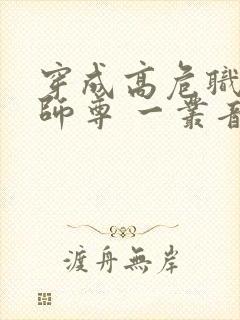 穿成高危職
師尊 一叢音
渡舟無岸